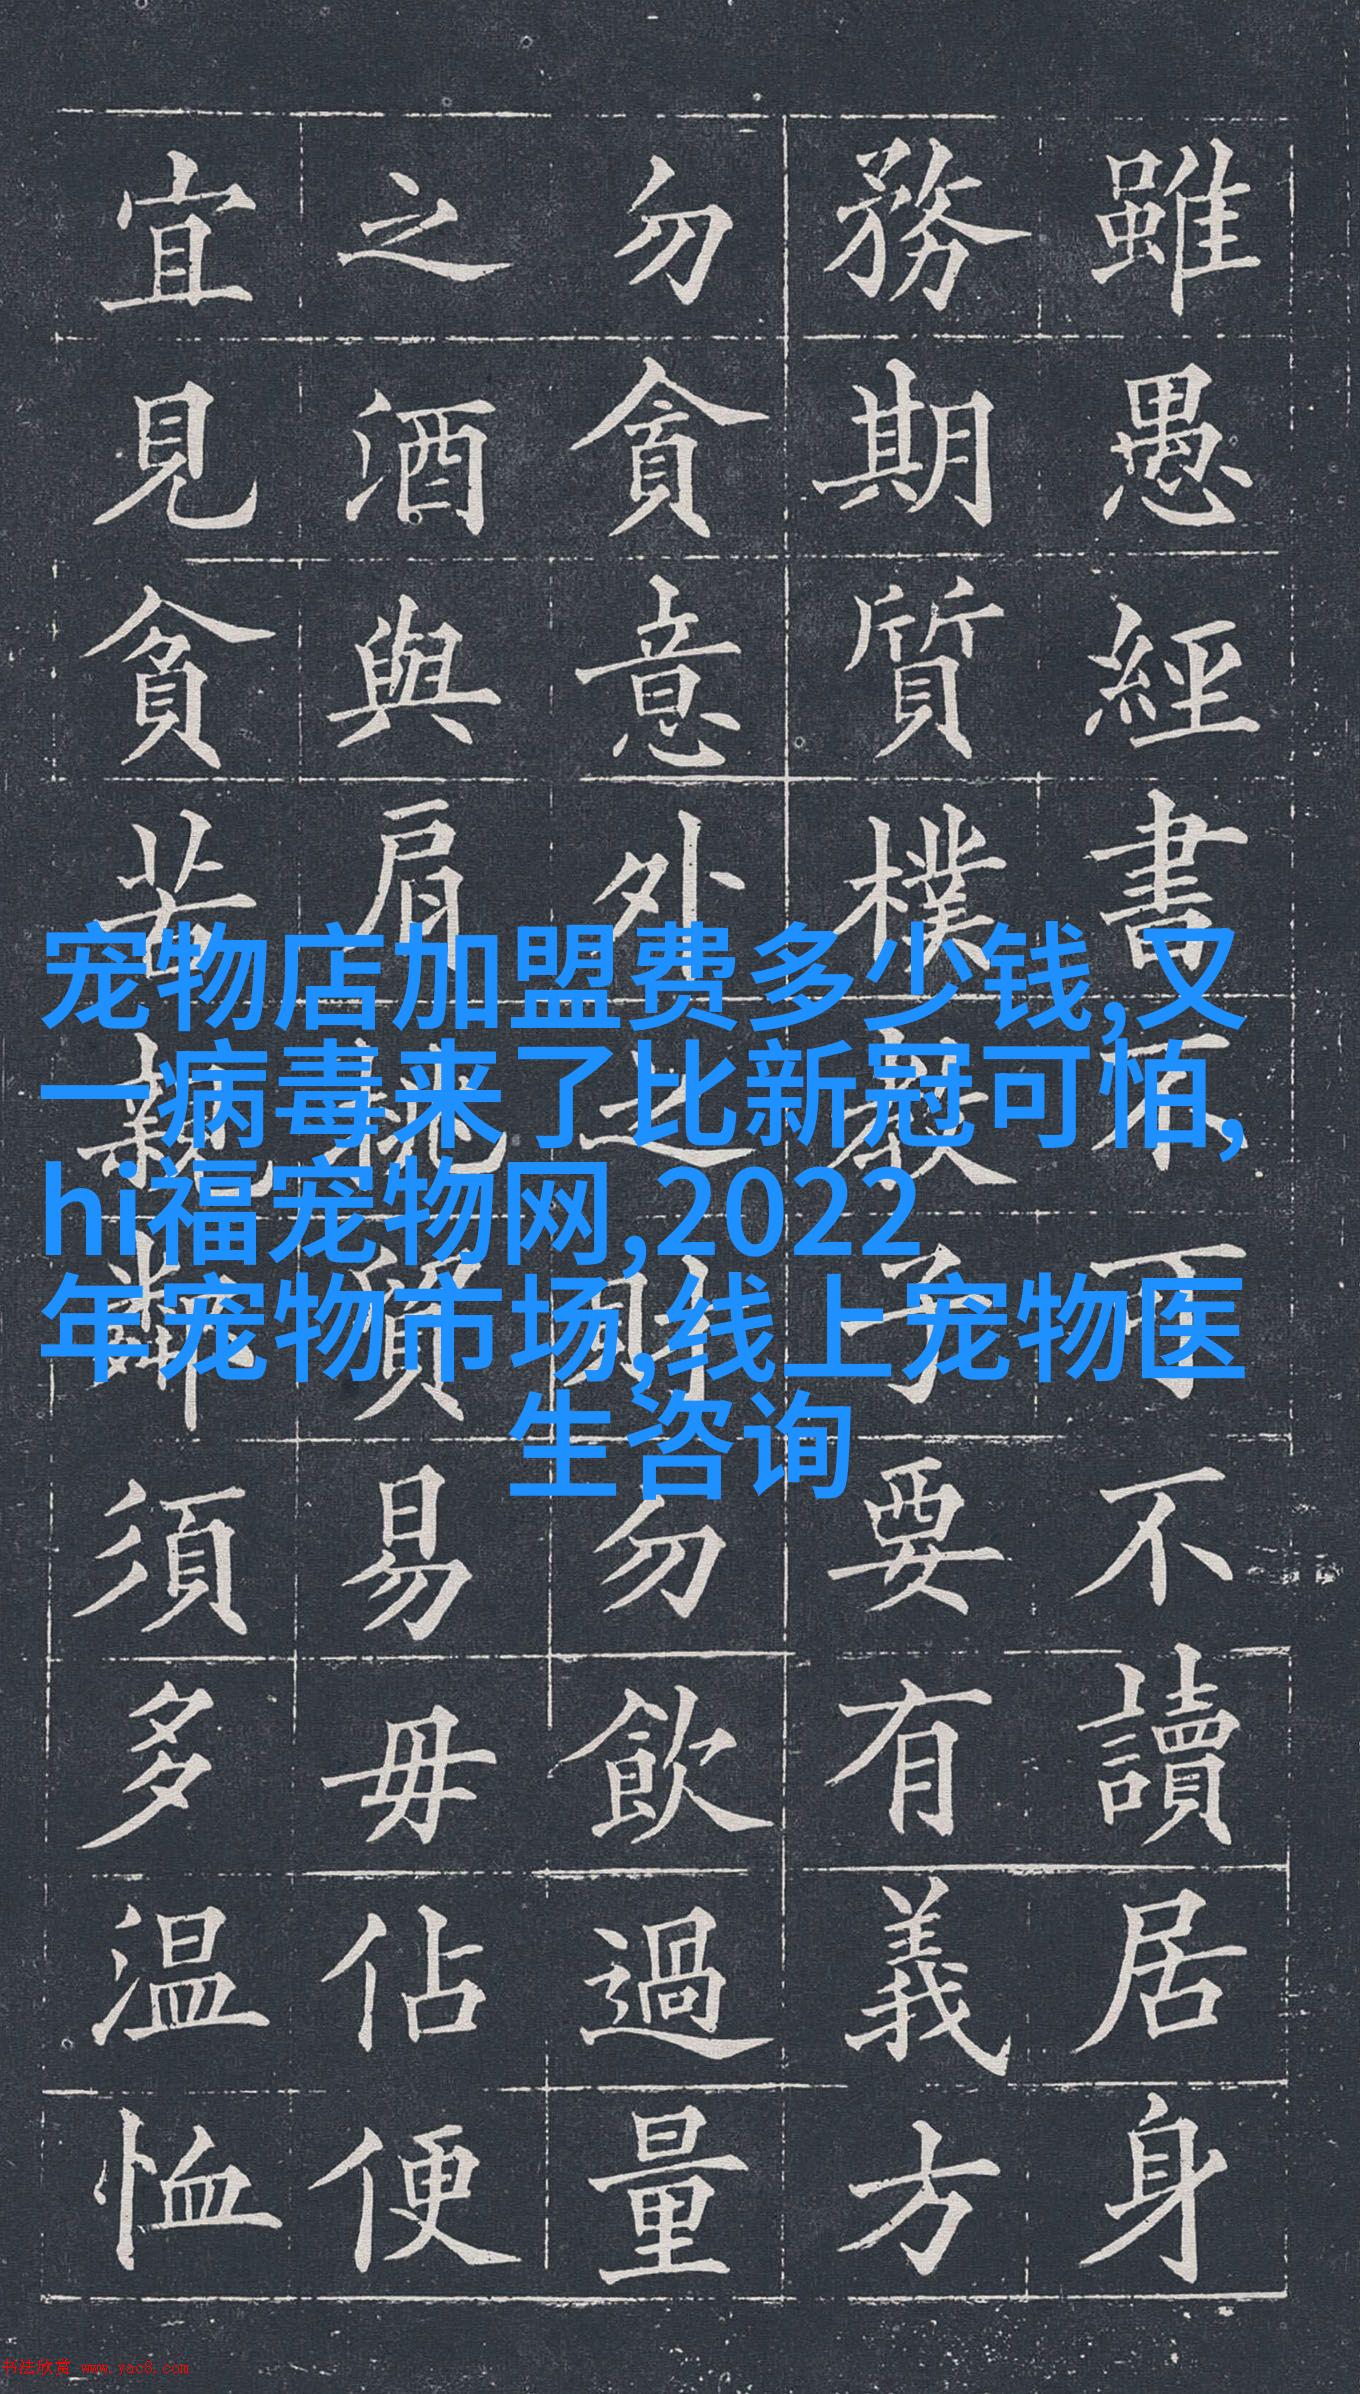 雖愚經書不可不讀居身
務期質樸教子要有義方
勿貪意外之財勿飲過量
之酒與肩挑貿易毋佔便
宜見貧苦親鄰須多温恤
宠物店加盟费多少钱,又
一病毒来了比新冠可怕,
hi福宠物网,2022
年宠物市场,线上宠物医
生咨询
书法欣赏 www.yac8.com